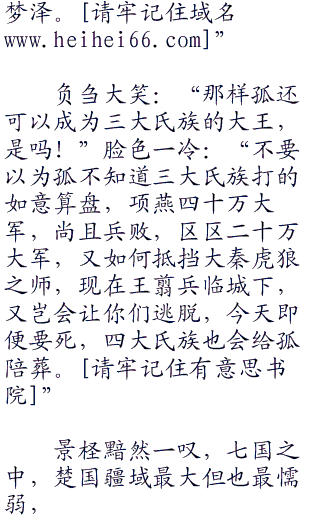 梦泽。[请牢记住域名
www.heihei66.com]”
负刍大笑：“那样孤还
可以成为三大氏族的大王，
是吗！”脸色一冷：“不要
以为孤不知道三大氏族打的
如意算盘，项燕四十万大
军，尚且兵败，区区二十万
大军，又如何抵挡大秦虎狼
之师，现在王翦兵临城下，
又岂会让你们逃脱，今天即
便要死，四大氏族也会给孤
陪葬。[请牢记住有意思书
院]”
景柽黯然一叹，七国之
中，楚国疆域最大但也最懦
弱，